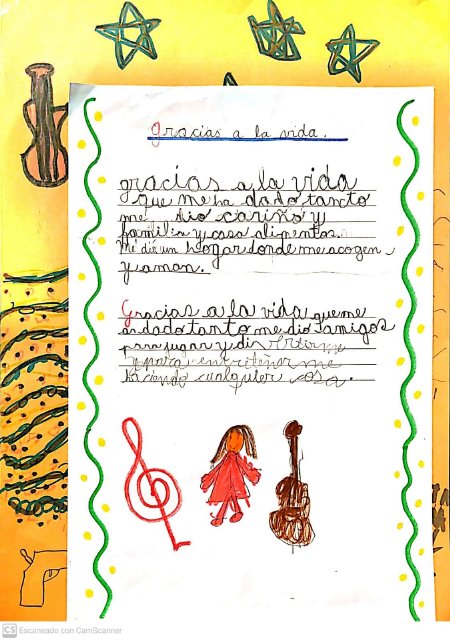 gracias a la vida.
gracias a la vida
que me ha dado tanto
me dio cariño y
familia y casa alimentos.
Me dio un hogar donde me acogen
y aman.
Gracias a la vida que me
a dado tanto me dio amigos
para jugar y divertirme
y para entretenerme
haciendo cualquier cosa.
CS Escaneado con CamScanner